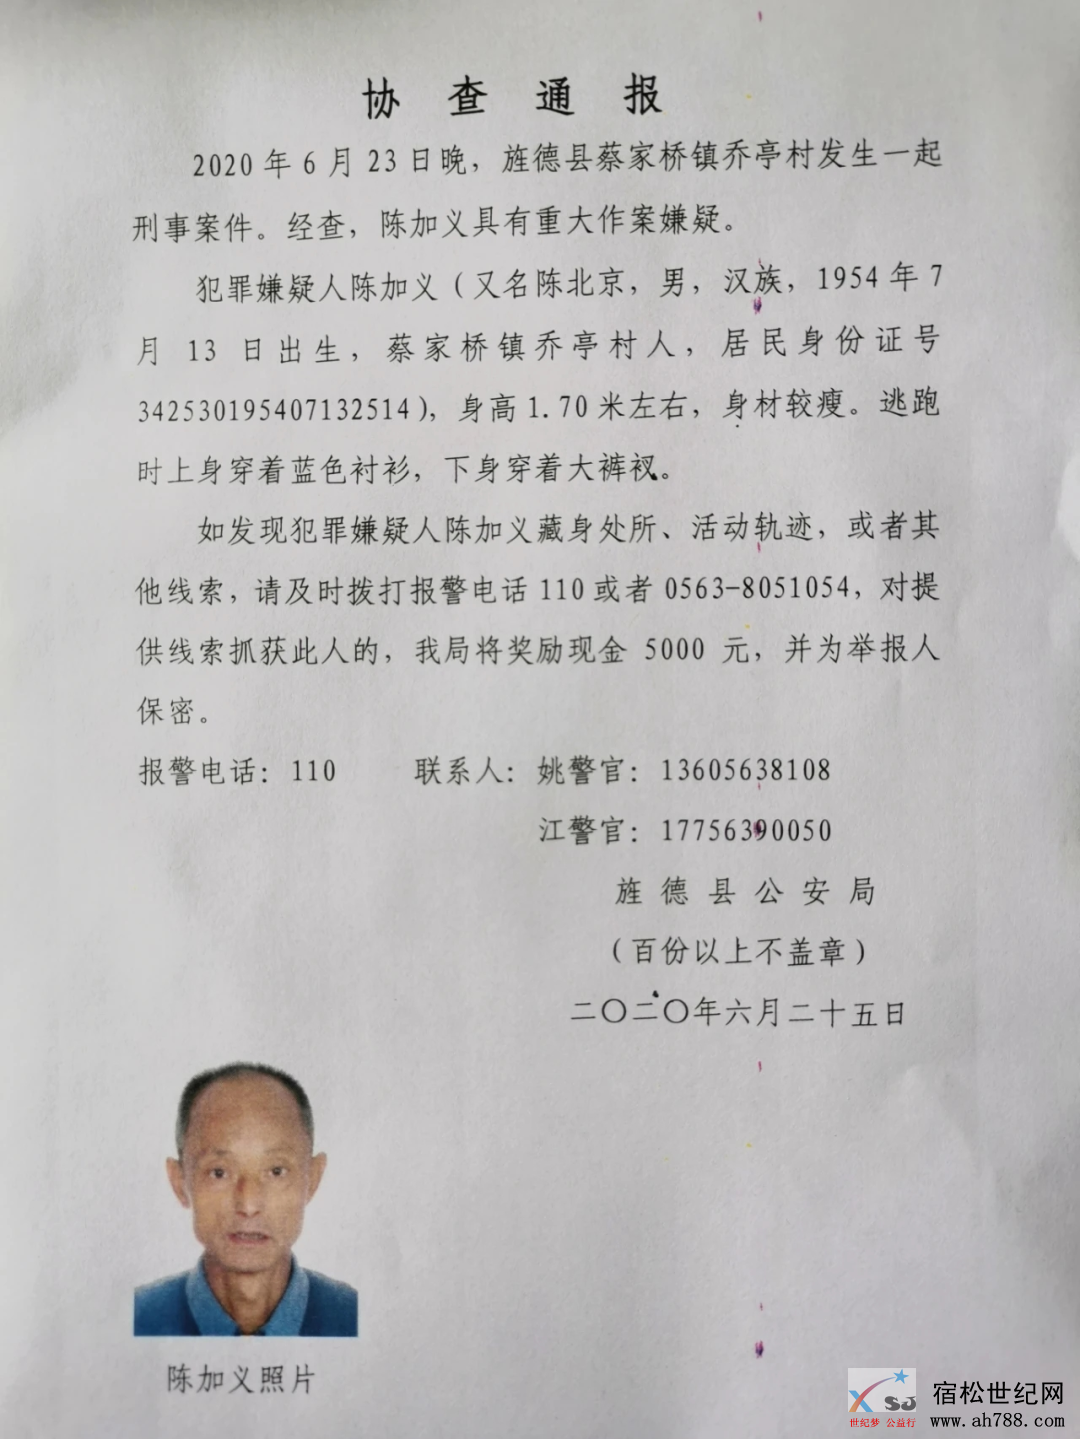 协查通报
2020年6月23日晚，旌德县蔡家桥镇乔亭村发生一起
刑事案件。经查，陈加义具有重大作案嫌疑。
犯罪嫌疑人陈加义（又名陈北京，男，汉族，1954年7
月13日出生，蔡家桥镇乔亭村人，居民身份证号
342530195407132514），身高1.70米左右，身材较瘦。逃跑
时上身穿着蓝色衬衫，下身穿着大裤衩。
如发现犯罪嫌疑人陈加义藏身处所、活动轨迹，或者其
他线索，请及时拨打报警电话110或者0563-8051054，对提
供线索抓获此人的，我局将奖励现金5000元，并为举报人
保密。
报警电话：110 联系人：姚警官：13605638108
江警官：17756390050
旌德县公安局
（百份以上不盖章）
二〇二〇年六月二十五日
陈加义照片
XSJ
世纪梦 公益行
宿松世纪网
www.ah788.com